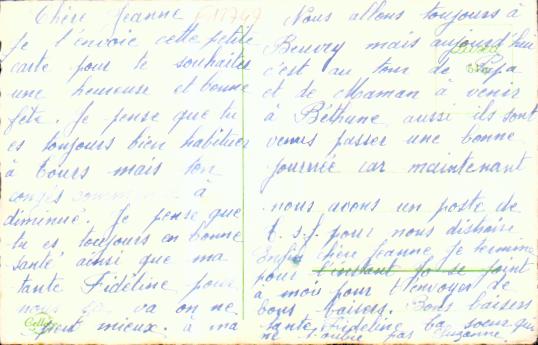 Chère Jeanne
Je t'envoie cette petite
carte pour te souhaiter
une heureuse et bonne
fête. Je pense que tu
es toujours bien habituer
à Tours mais ton
congés à
diminué. Je pense que
tu es toujours en bonne
santé ainsi que ma
tante Fidéline pour
nous ça va on ne
peut mieux. à ma
Nous allons toujours à
Beuvry mais aujourd'hui
c'est au tour de Papa
et de Maman à venir
à Béthune aussi ils sont
venus passer une bonne
journée car maintenant
nous avons un poste de
t.s.f. pour nous distraire
Enfin chère Jeanne je termine
pour l'instant
à mois pour t'envoyer de
bons baisers. Bons baisers
tante Fidéline ta soeur qui
ne t'oublie pas Suzanne.